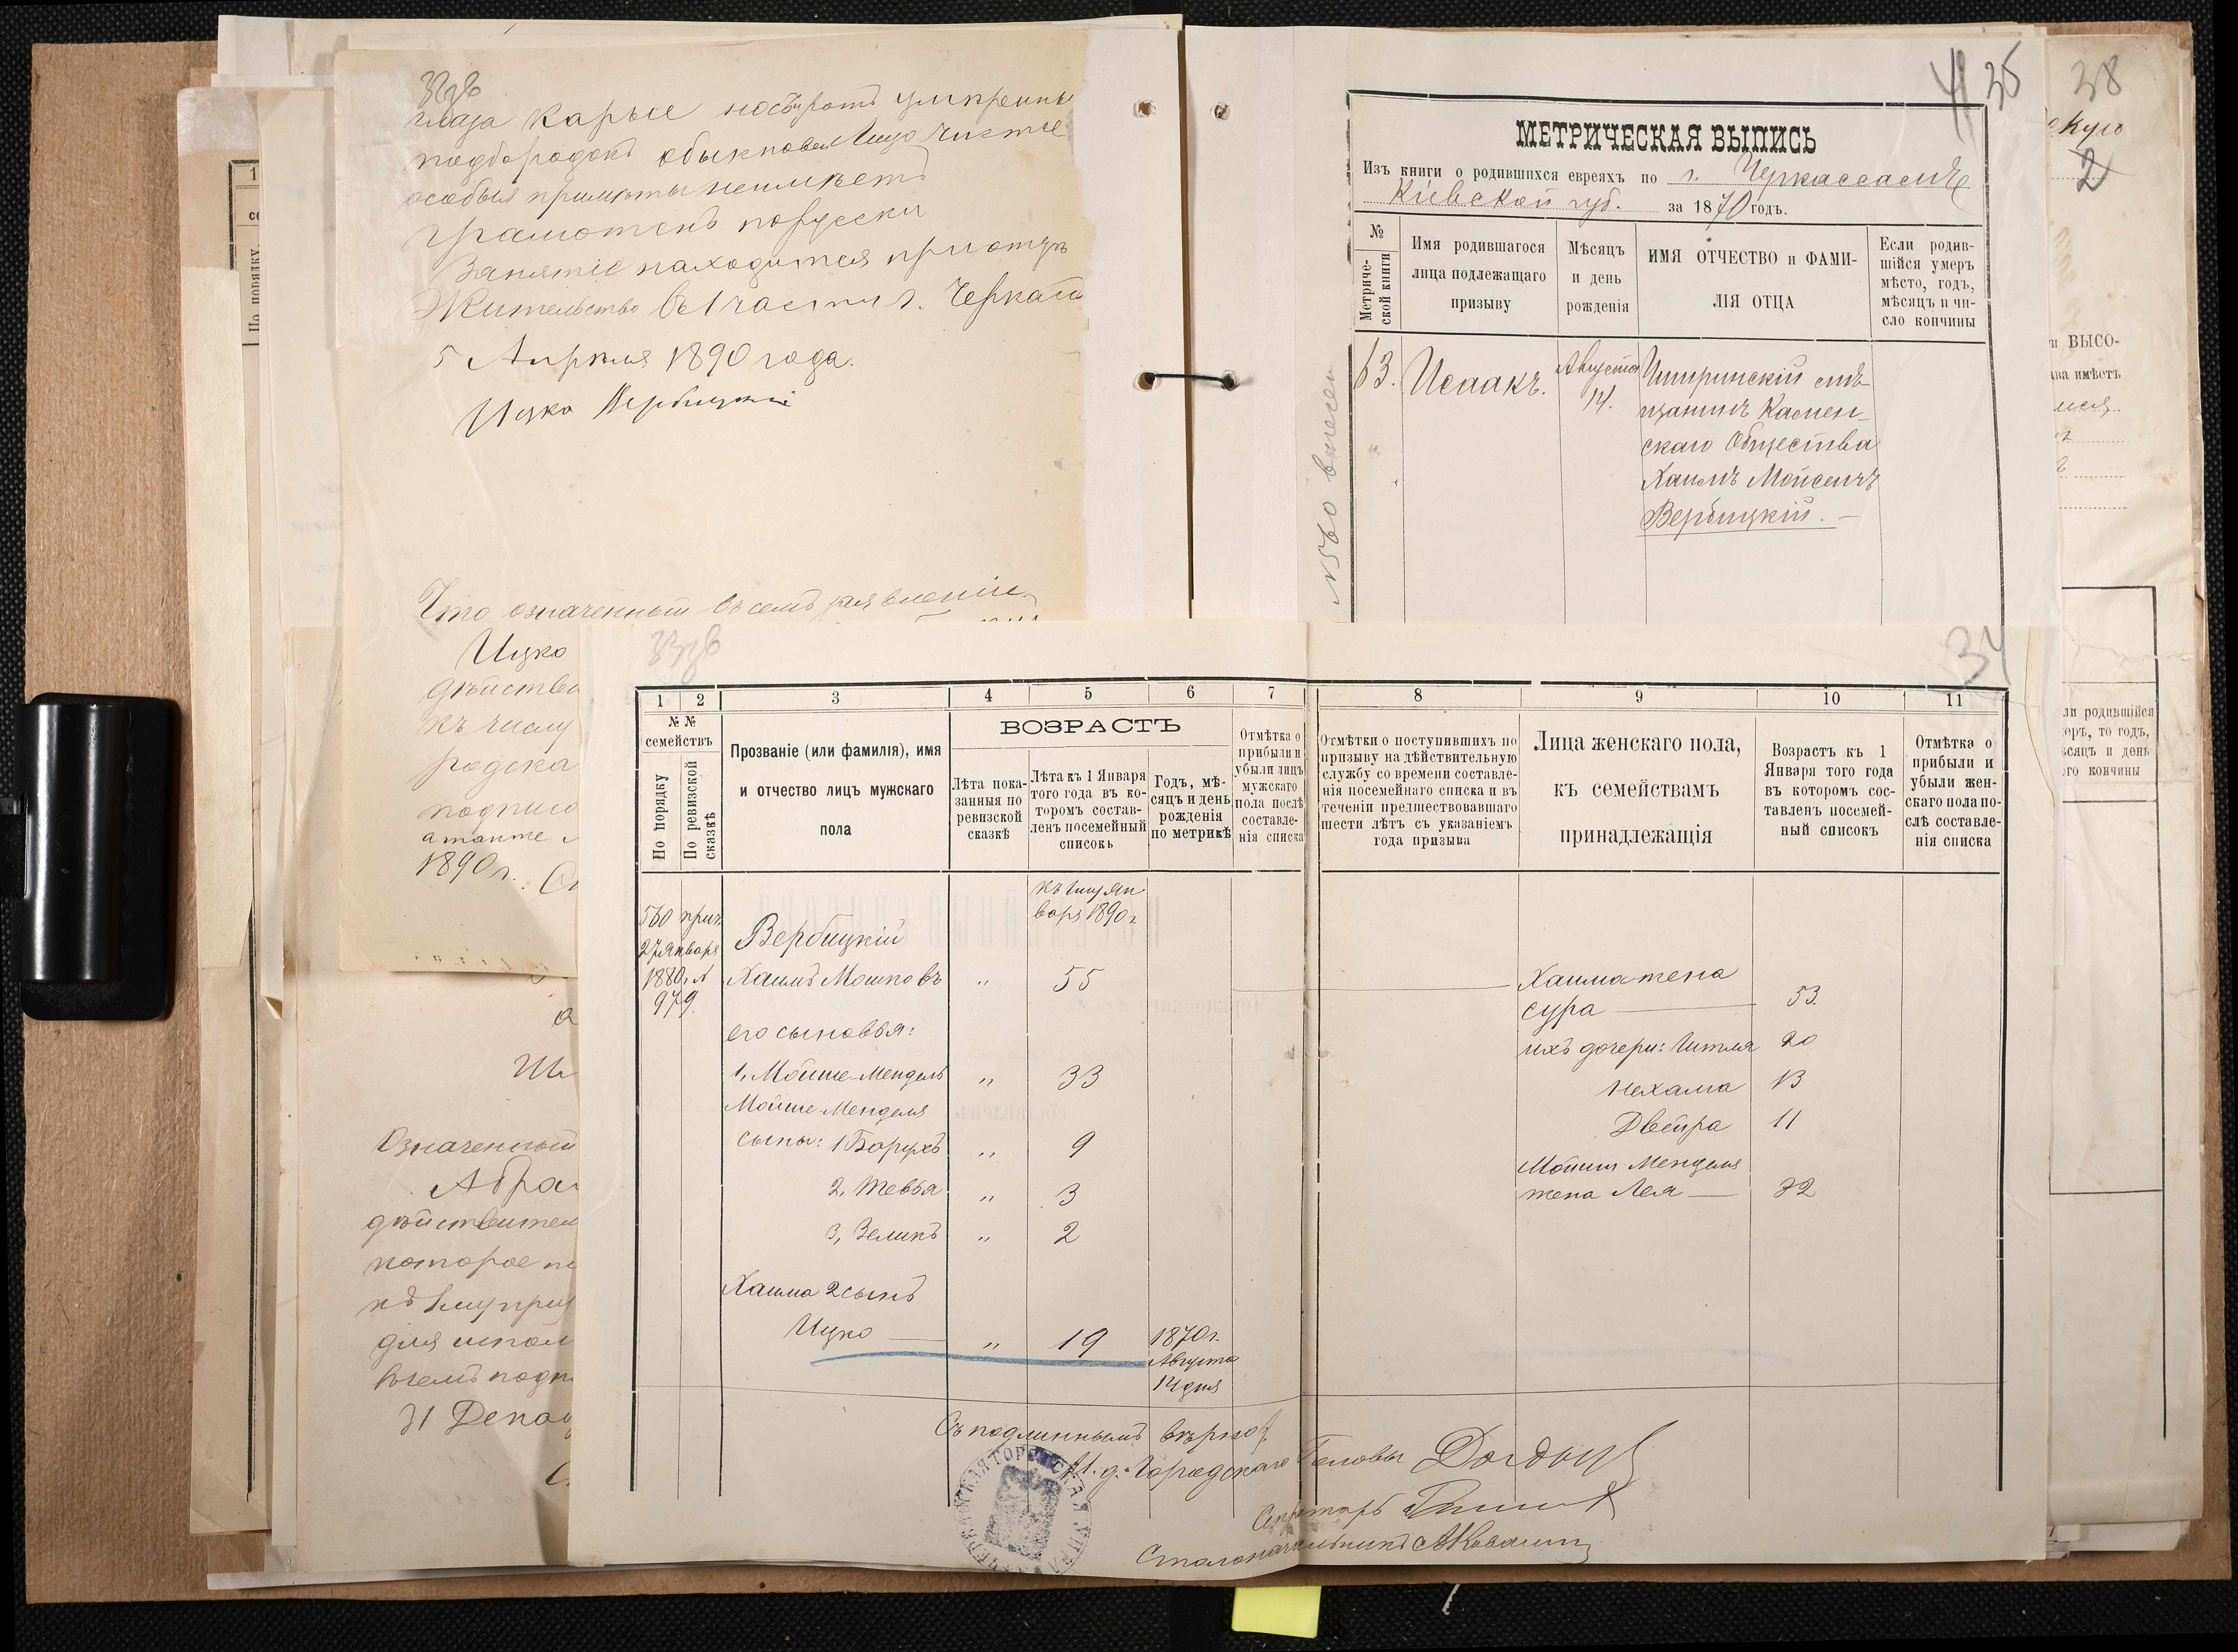 глаза карые носъ ротъ умѣренны
подбородокъ обыкновен Лицо чистые
особыя примѣты неимѣетъ
грамотенъ порусски
Занятіе находится приотцѣ
Жительство въ 1 части г. Черкасъ
5 Апрѣля 1890 года.
Ицко Вербицкій
Что означенный въ семъ заявленіи
Ицко
дѣйстви
къ числу
родска
подписо
а также
1890 г.
Означенный
Абра
дѣйствител
которое по
къ
для испол
въ чемъ подп
31 Дека
35
МЕТРИЧЕСКАЯ ВЫПИСЬ
Изъ книги о родившихся евреяхъ по г. Черкассамъ
Кіевской губ. за 1870 годъ.
№ Метриче-ской книги
Имя родившагося лица подлежащаго призыву
Мѣсяцъ и день рожденія
ИМЯ ОТЧЕСТВО и ФАМИ-ЛІЯ ОТЦА
Если родив-шійся умеръ мѣсто, годъ, мѣсяцъ и чи-сло кончины
63. Исаакъ. Августа 14.
мѣ-
щанинъ Камен-
скаго Общества
Хаимъ Мойсеичъ
Вербицкій.
№560
38
скую
2
и ВЫСО-
ва имѣетъ
ли родившійся
еръ, то годъ,
ѣсяцъ и день
го кончины
34
1 2 3 4 5 6 7 8 9 10 11
№ №
семействъ
По порядку
По ревизской сказкѣ
Прозваніе (или фамилія), имя
и отчество лицъ мужскаго
пола
ВОЗРАСТЪ
Лѣта пока-
занныя по
ревизской
сказкѣ
Лѣта къ 1 Января
того года въ ко-
торомъ состав-
ленъ посемейный
списокъ
Годъ, мѣ-
сяцъ и день
рожденія
по метрикѣ
Отмѣтка о
прибыли и
убыли лицъ
мужскаго
пола послѣ
составле-
нія списка
Отмѣтки о поступившихъ по
призыву на дѣйствительную
службу со времени составле-
нія посемейнаго списка и въ
теченіи предшествовавшаго
шести лѣтъ съ указаніемъ
года призыва
Лица женскаго пола,
къ семействамъ
принадлежащія
Возрастъ къ 1
Января того года
въ которомъ сос-
тавленъ посемей-
ный списокъ
Отмѣтка о
прибыли и
убыли жен-
скаго пола по-
слѣ составле-
нія списка
къ 1му Ян
варя 1890 г
560 прич.
27 января
1880 г. №
979.
Вербицкій
Хаимъ Мошковъ " 55
Хаима жена
Сура 53.
его сыновья:
ихъ дочери: Читля 20
1, Мойше-Мендель " 33
Нехама 13
Мойше-Менделя
сыны: 1 Борухъ " 9
Двейра 11
Мойши Менделя
2, Тевья " 3
жена Лея 32
3, Зеликъ " 2
Хаима 2 сынъ
Ицко " 19 1870 г.
Августа
14 дня
Съ подлиннымъ вѣрно:
И. д. Городскаго Головы
Секретарь
Столоначальникъ